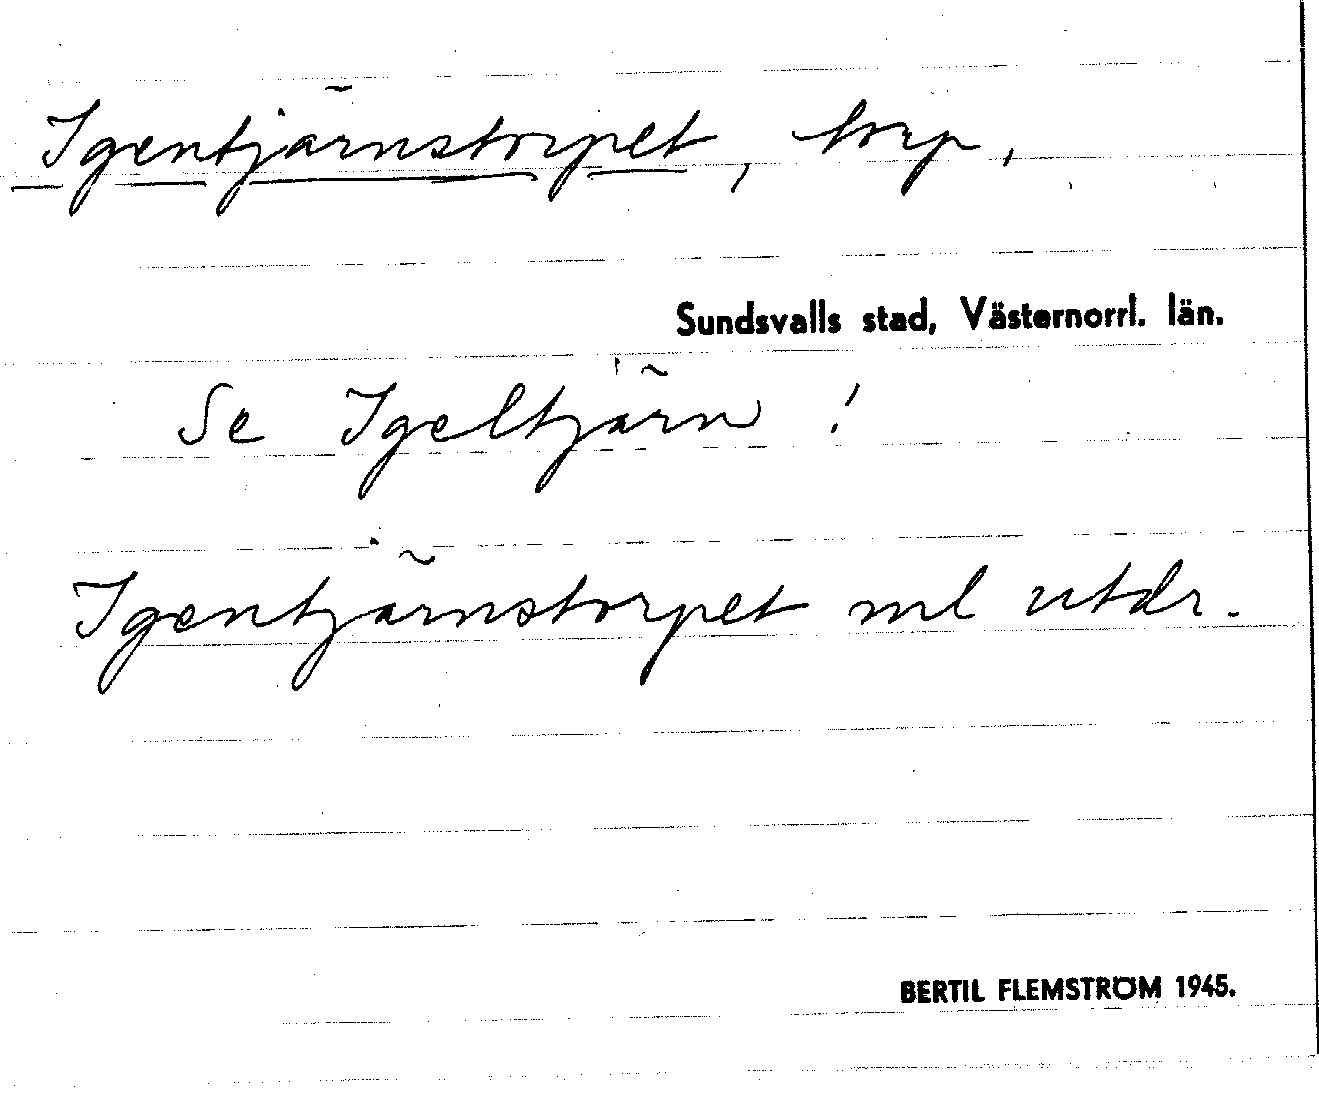 Igentjärnstorpet, torp,
Sundsvalls stad, Västernorrl. län.
Se Igeltjärn!
Igentjärnstorpet ml utdr.
BERTIL FLEMSTRÖM 1945.